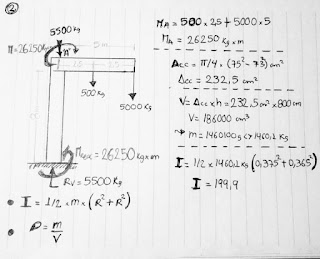 ②
5500 kg
M=26250 kg
5 m
2.5
2.5
500 kg
5000 kg
Mbase = 26250 kg×m
Rv = 5500 kg
• I = 1/2 × m × (R² + R²)
• ρ = m/V
MA = 500 × 2,5 + 5000 × 5
MA = 26250 kg×m
Acc = π/4 · (75² - 73²) cm²
Acc = 232,5 cm²
V = Acc×h = 232,5 cm² × 800 cm
V = 186000 cm³
m = 1460100 g <> 1460,1 Kg
I = 1/2 × 1460,1 Kg (0,375² + 0,365²)
I = 199,9